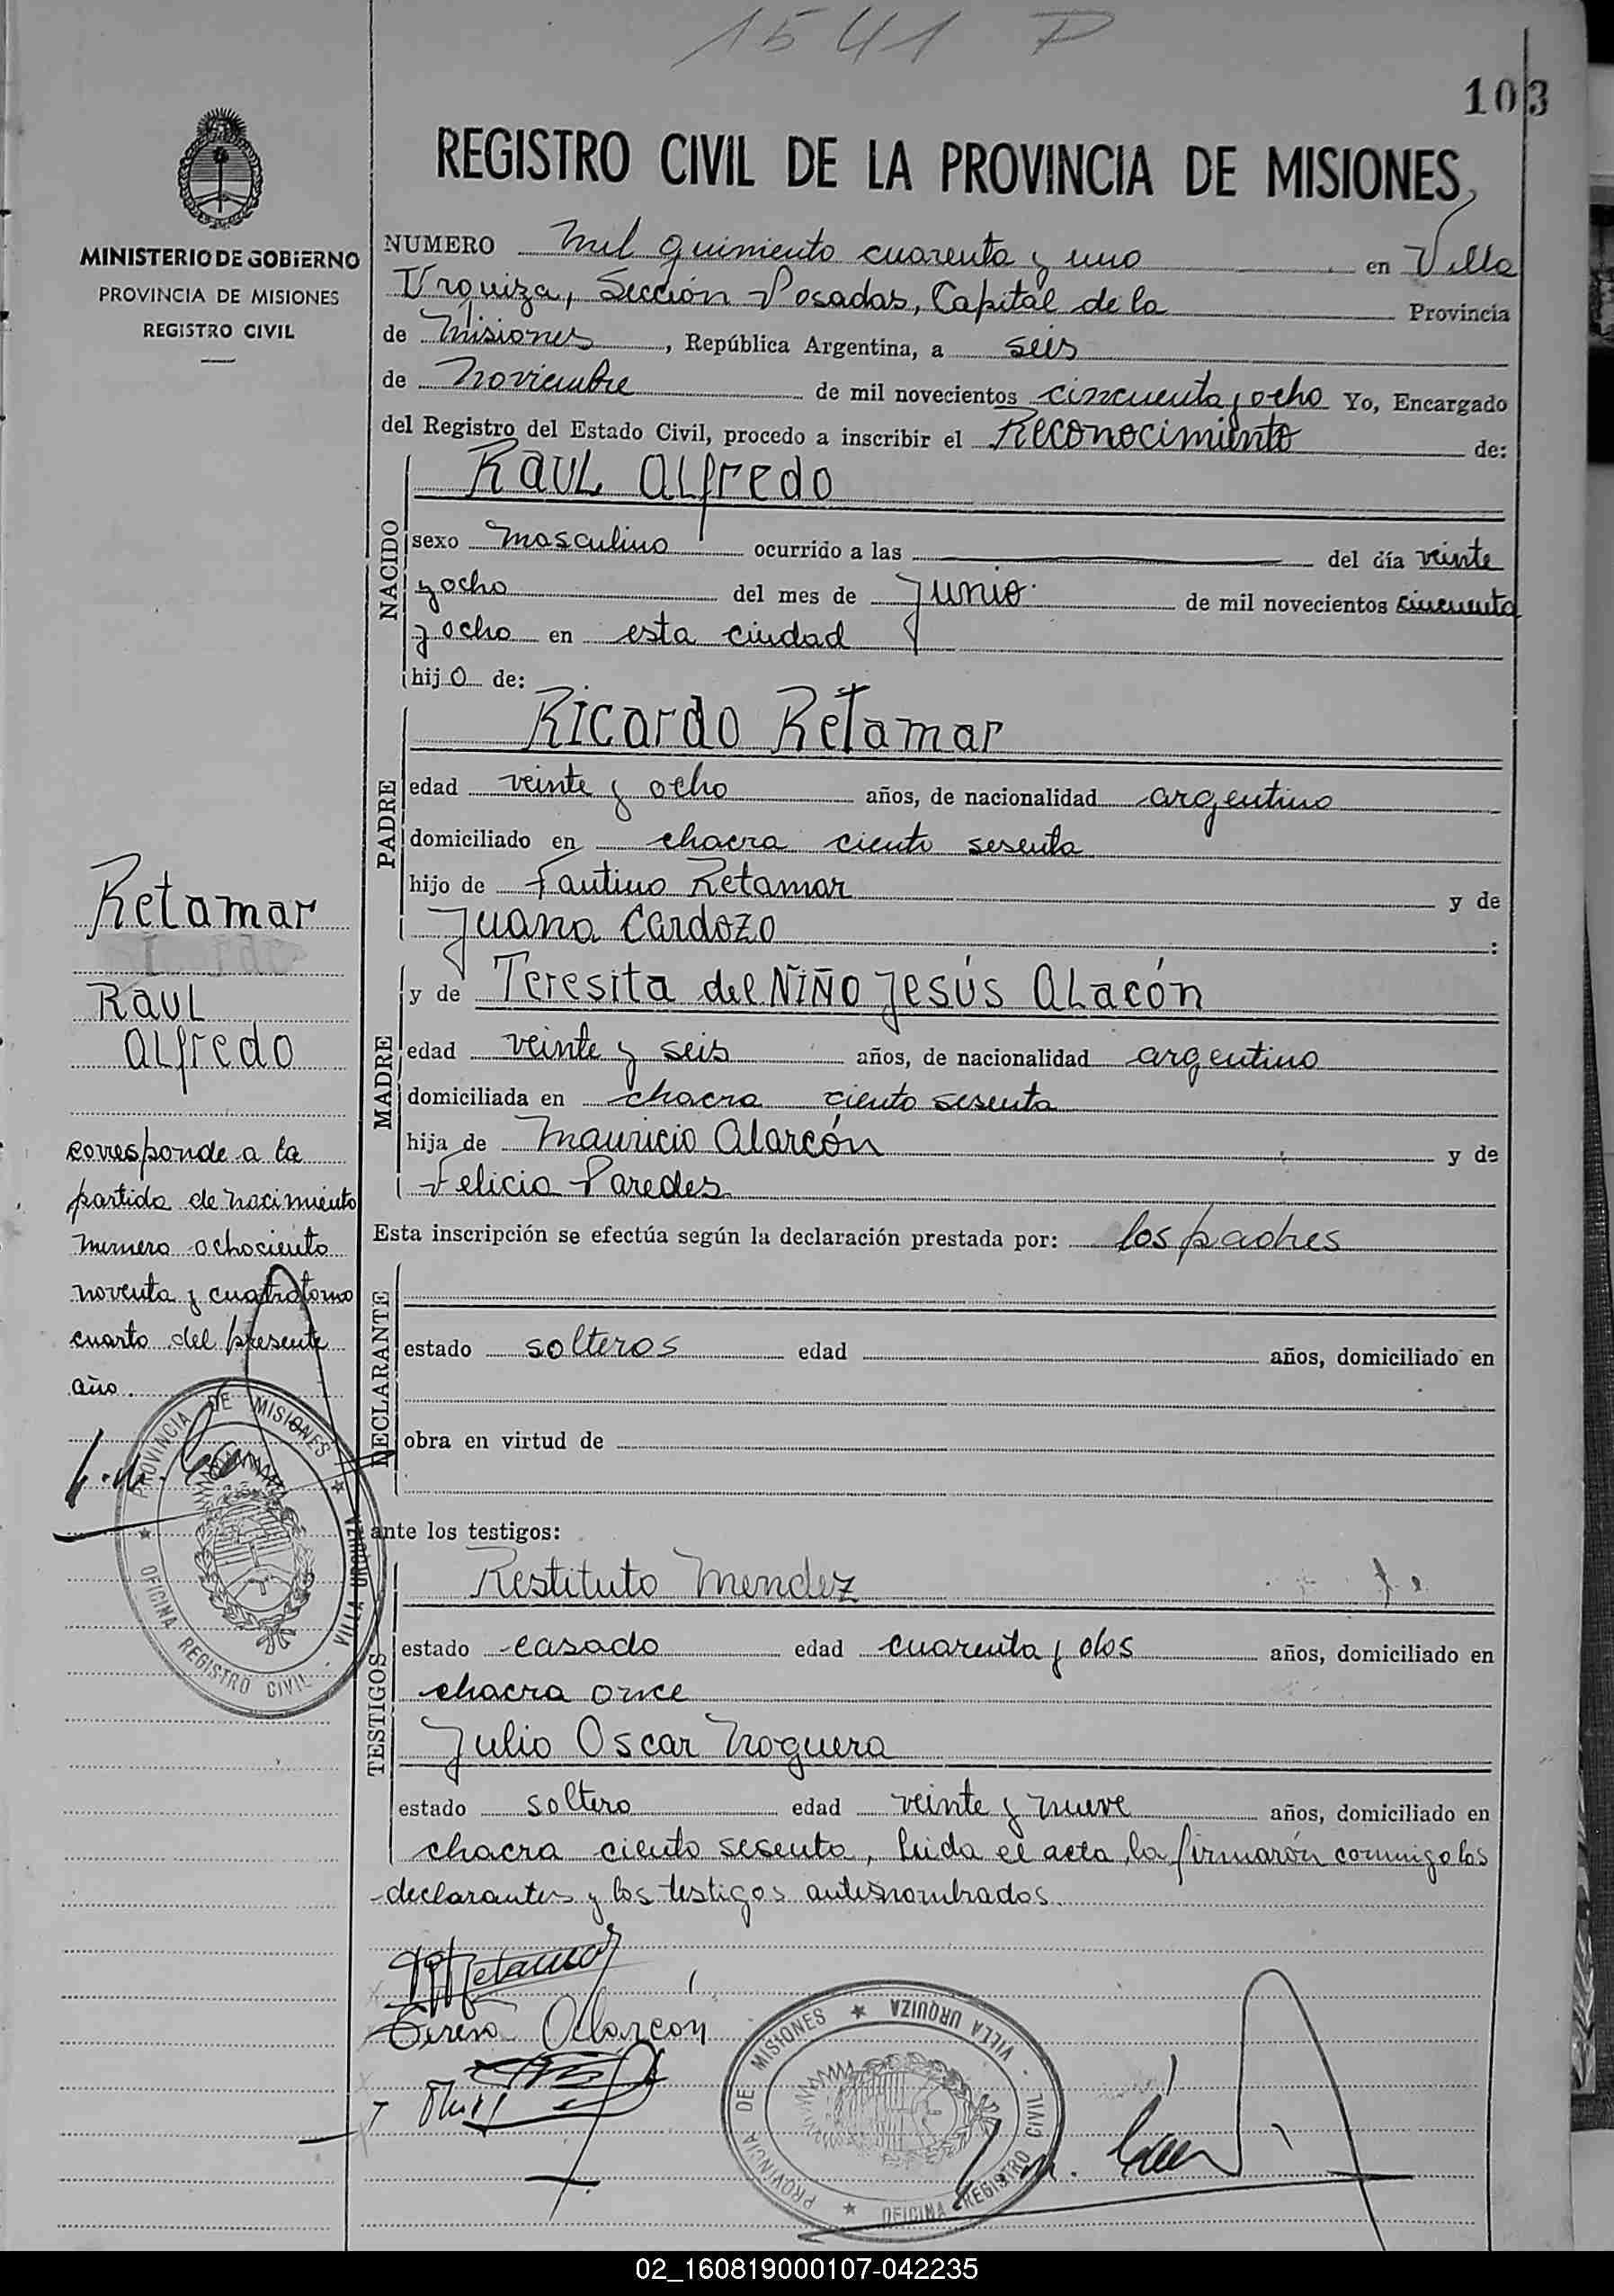 1541 P
103
REGISTRO CIVIL DE LA PROVINCIA DE MISIONES
MINISTERIO DE GOBIERNO
PROVINCIA DE MISIONES
REGISTRO CIVIL
NUMERO mil quiniento cuarenta y uno en Villa
Urquiza, Sección Posadas, Capital de la Provincia
de Misiones, República Argentina, a seis
de Noviembre de mil novecientos cincuenta y ocho Yo, Encargado
del Registro del Estado Civil, procedo a inscribir el Reconocimiento de:
NACIDO
Raul Alfredo
sexo masculino ocurrido a las del día veinte
y ocho del mes de Junio de mil novecientos cincuenta
y ocho en esta ciudad
hijo de:
PADRE
Ricardo Retamar
edad veinte y ocho años, de nacionalidad argentino
domiciliado en chacra ciento sesenta
hijo de Fautino Retamar y de
Juana Cardozo :
MADRE
y de Teresita del Niño Jesús Alacón
edad veinte y seis años, de nacionalidad argentino
domiciliada en chacra ciento sesenta
hija de Mauricio Alarcón y de
Felicia Paredes
Esta inscripción se efectúa según la declaración prestada por: los padres
DECLARANTE
estado solteros edad años, domiciliado en
obra en virtud de
ante los testigos:
TESTIGOS
Restituto Mendez
estado casado edad cuarenta y dos años, domiciliado en
chacra once
Julio Oscar Noguera
estado soltero edad veinte y nueve años, domiciliado en
chacra ciento sesenta, leida el acta, la firmarón conmigo los
declarantes y los testigos antesnombrados
Retamar
Raul
Alfredo
corresponde a la
partida de nacimiento
numero ochosciento
noventa y cuatro tomo
cuarto del presente
año.
PROVINCIA DE MISIONES
VILLA URQUIZA
OFICINA REGISTRO CIVIL
Retamar
Teresa Alarcón
PROVINCIA DE MISIONES
VILLA URQUIZA
OFICINA REGISTRO CIVIL
02_160819000107-042235